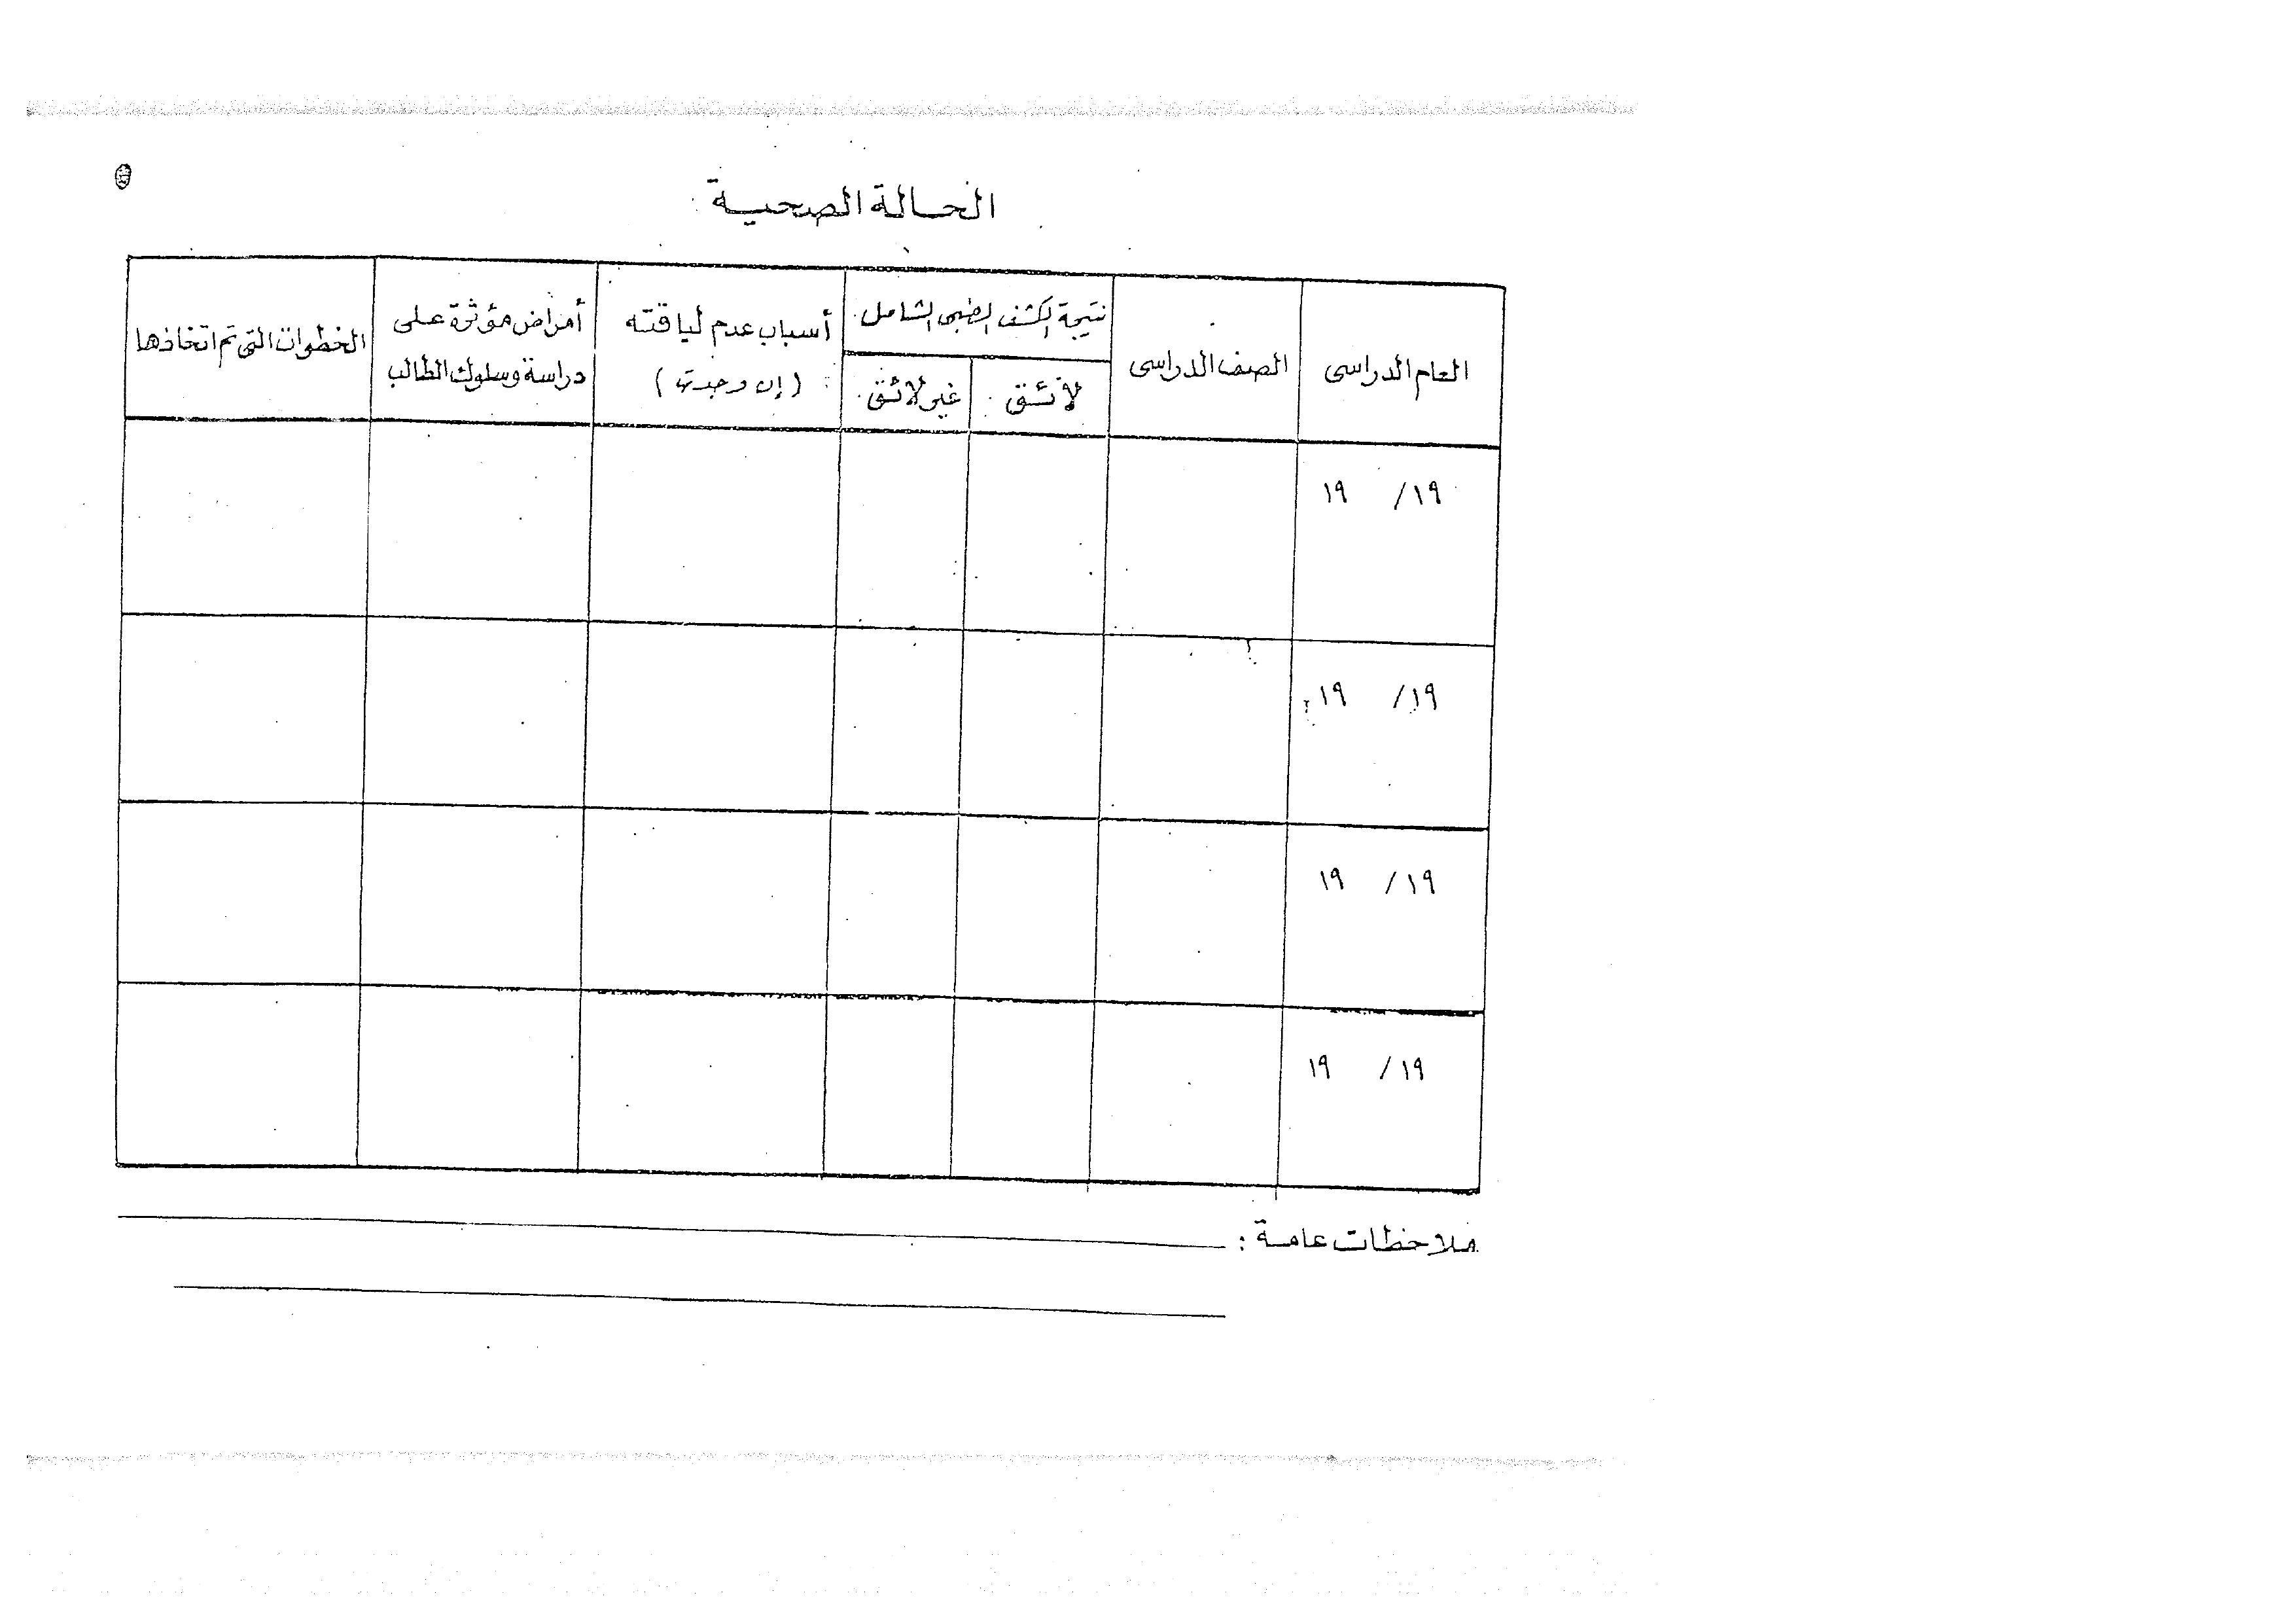 الحالة الصحية
العام الدراسى
الصف الدراسى
نتيجة الكشف الطبى الشامل
لائق
غير لائق
أسباب عدم لياقته
( إن وجدت )
أمراض مؤثرة على
دراسة وسلوك الطالب
الخطوات التى تم اتخاذها
١٩ / ١٩
١٩ / ١٩
١٩ / ١٩
١٩ / ١٩
ملاحظات عامة :